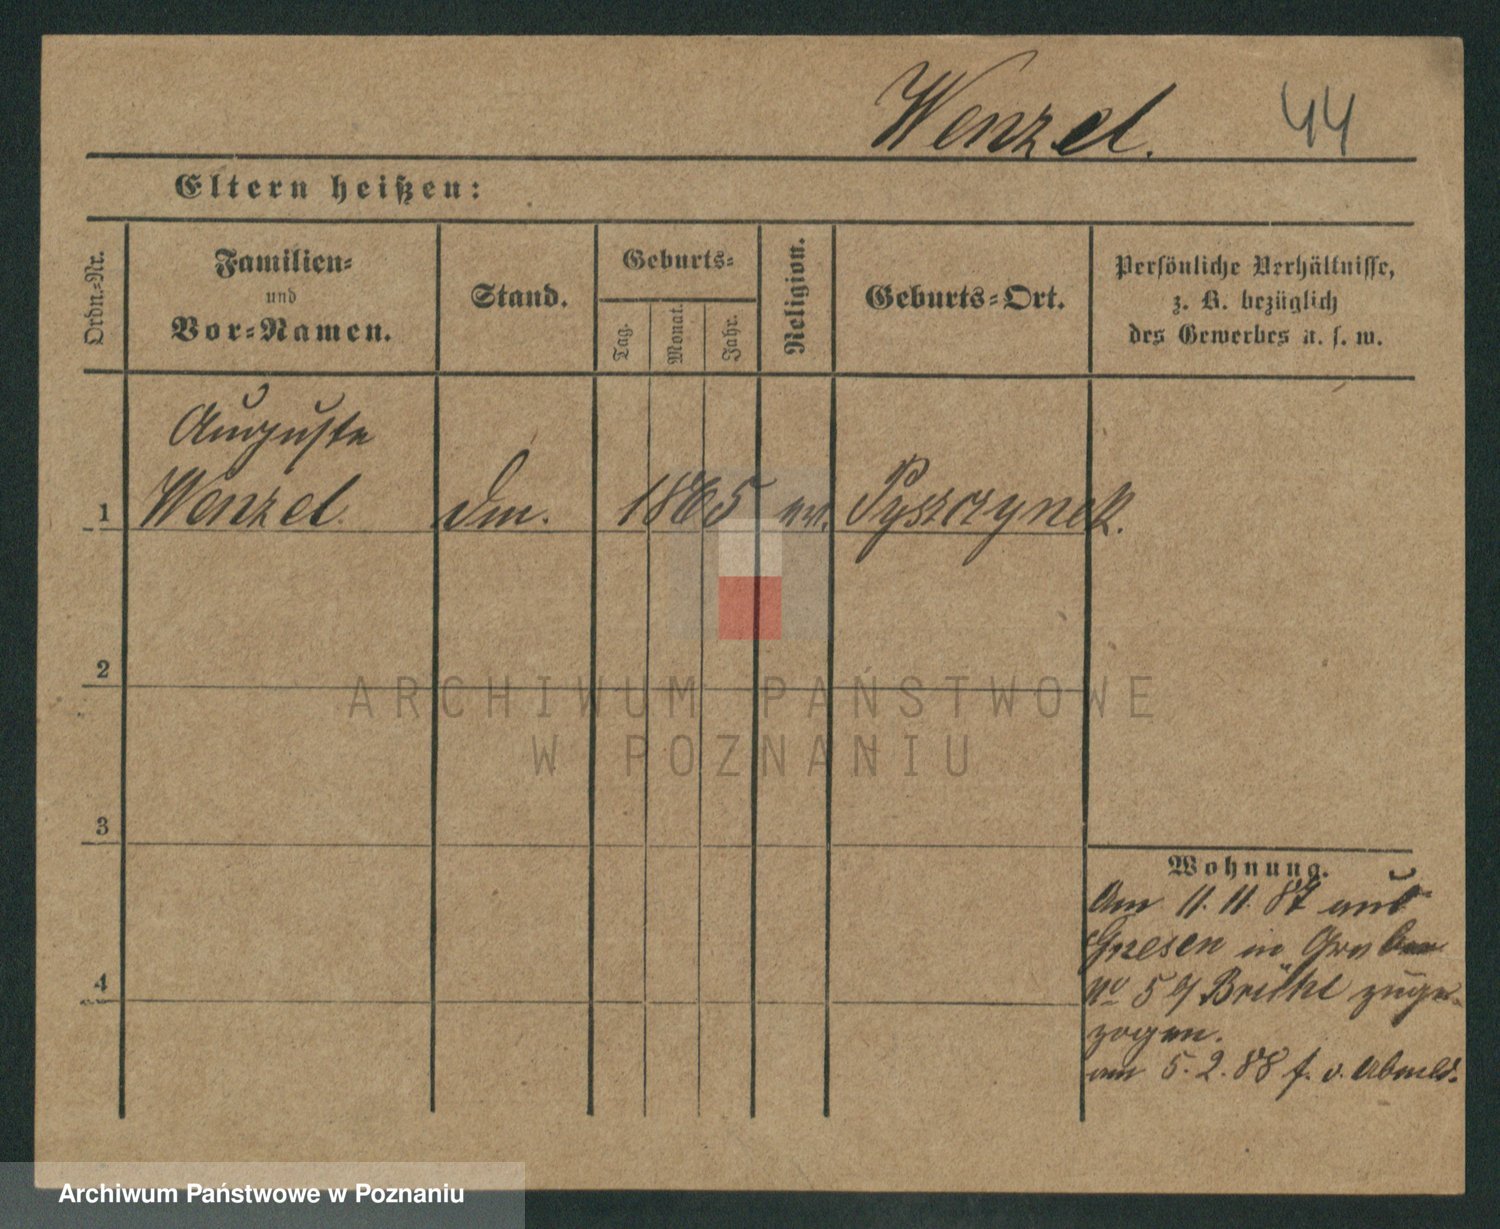 Wenzel. 44
Eltern heißen:
Ordn.-Nr.
Familien-
und
Vor-Namen.
Stand.
Geburts-
Tag.
Monat.
Jahr.
Religion.
Geburts-Ort.
Persönliche Verhältnisse,
z. B. bezüglich
des Gewerbes u. s. w.
Auguste
1 Wenzel. 1865 Pyszczynek.
2
ARCHIWUM PAŃSTWOWE
W POZNANIU
3
Wohnung.
Am 11.11.87 aus
Gnesen in Graben
No 5 Brühl zuge-
zogen.
am 5.2.88 f. v. Abmeld.
4
Archiwum Państwowe w Poznaniu